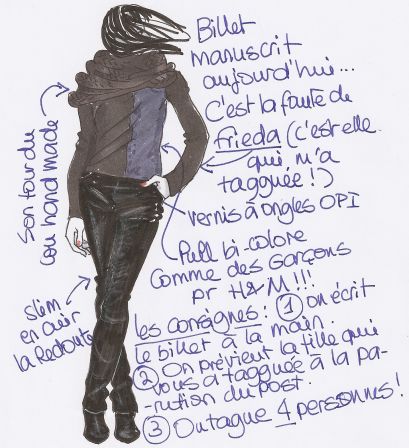 Billet
manuscrit
aujourd'hui...
C'est la faute de
frieda (c'est elle
qui m'a
tagguée !)
vernis à ongles OPI
Pull bi-colore
Comme des Garçons
pr H&M !!!
Son tour du
cou hand made
slim
en cuir
la Redoute
les consignes : ① on écrit
le billet à la main.
② On prévient la fille qui
vous a tagguée à la pa-
rution du post.
③ On tague 4 personnes !